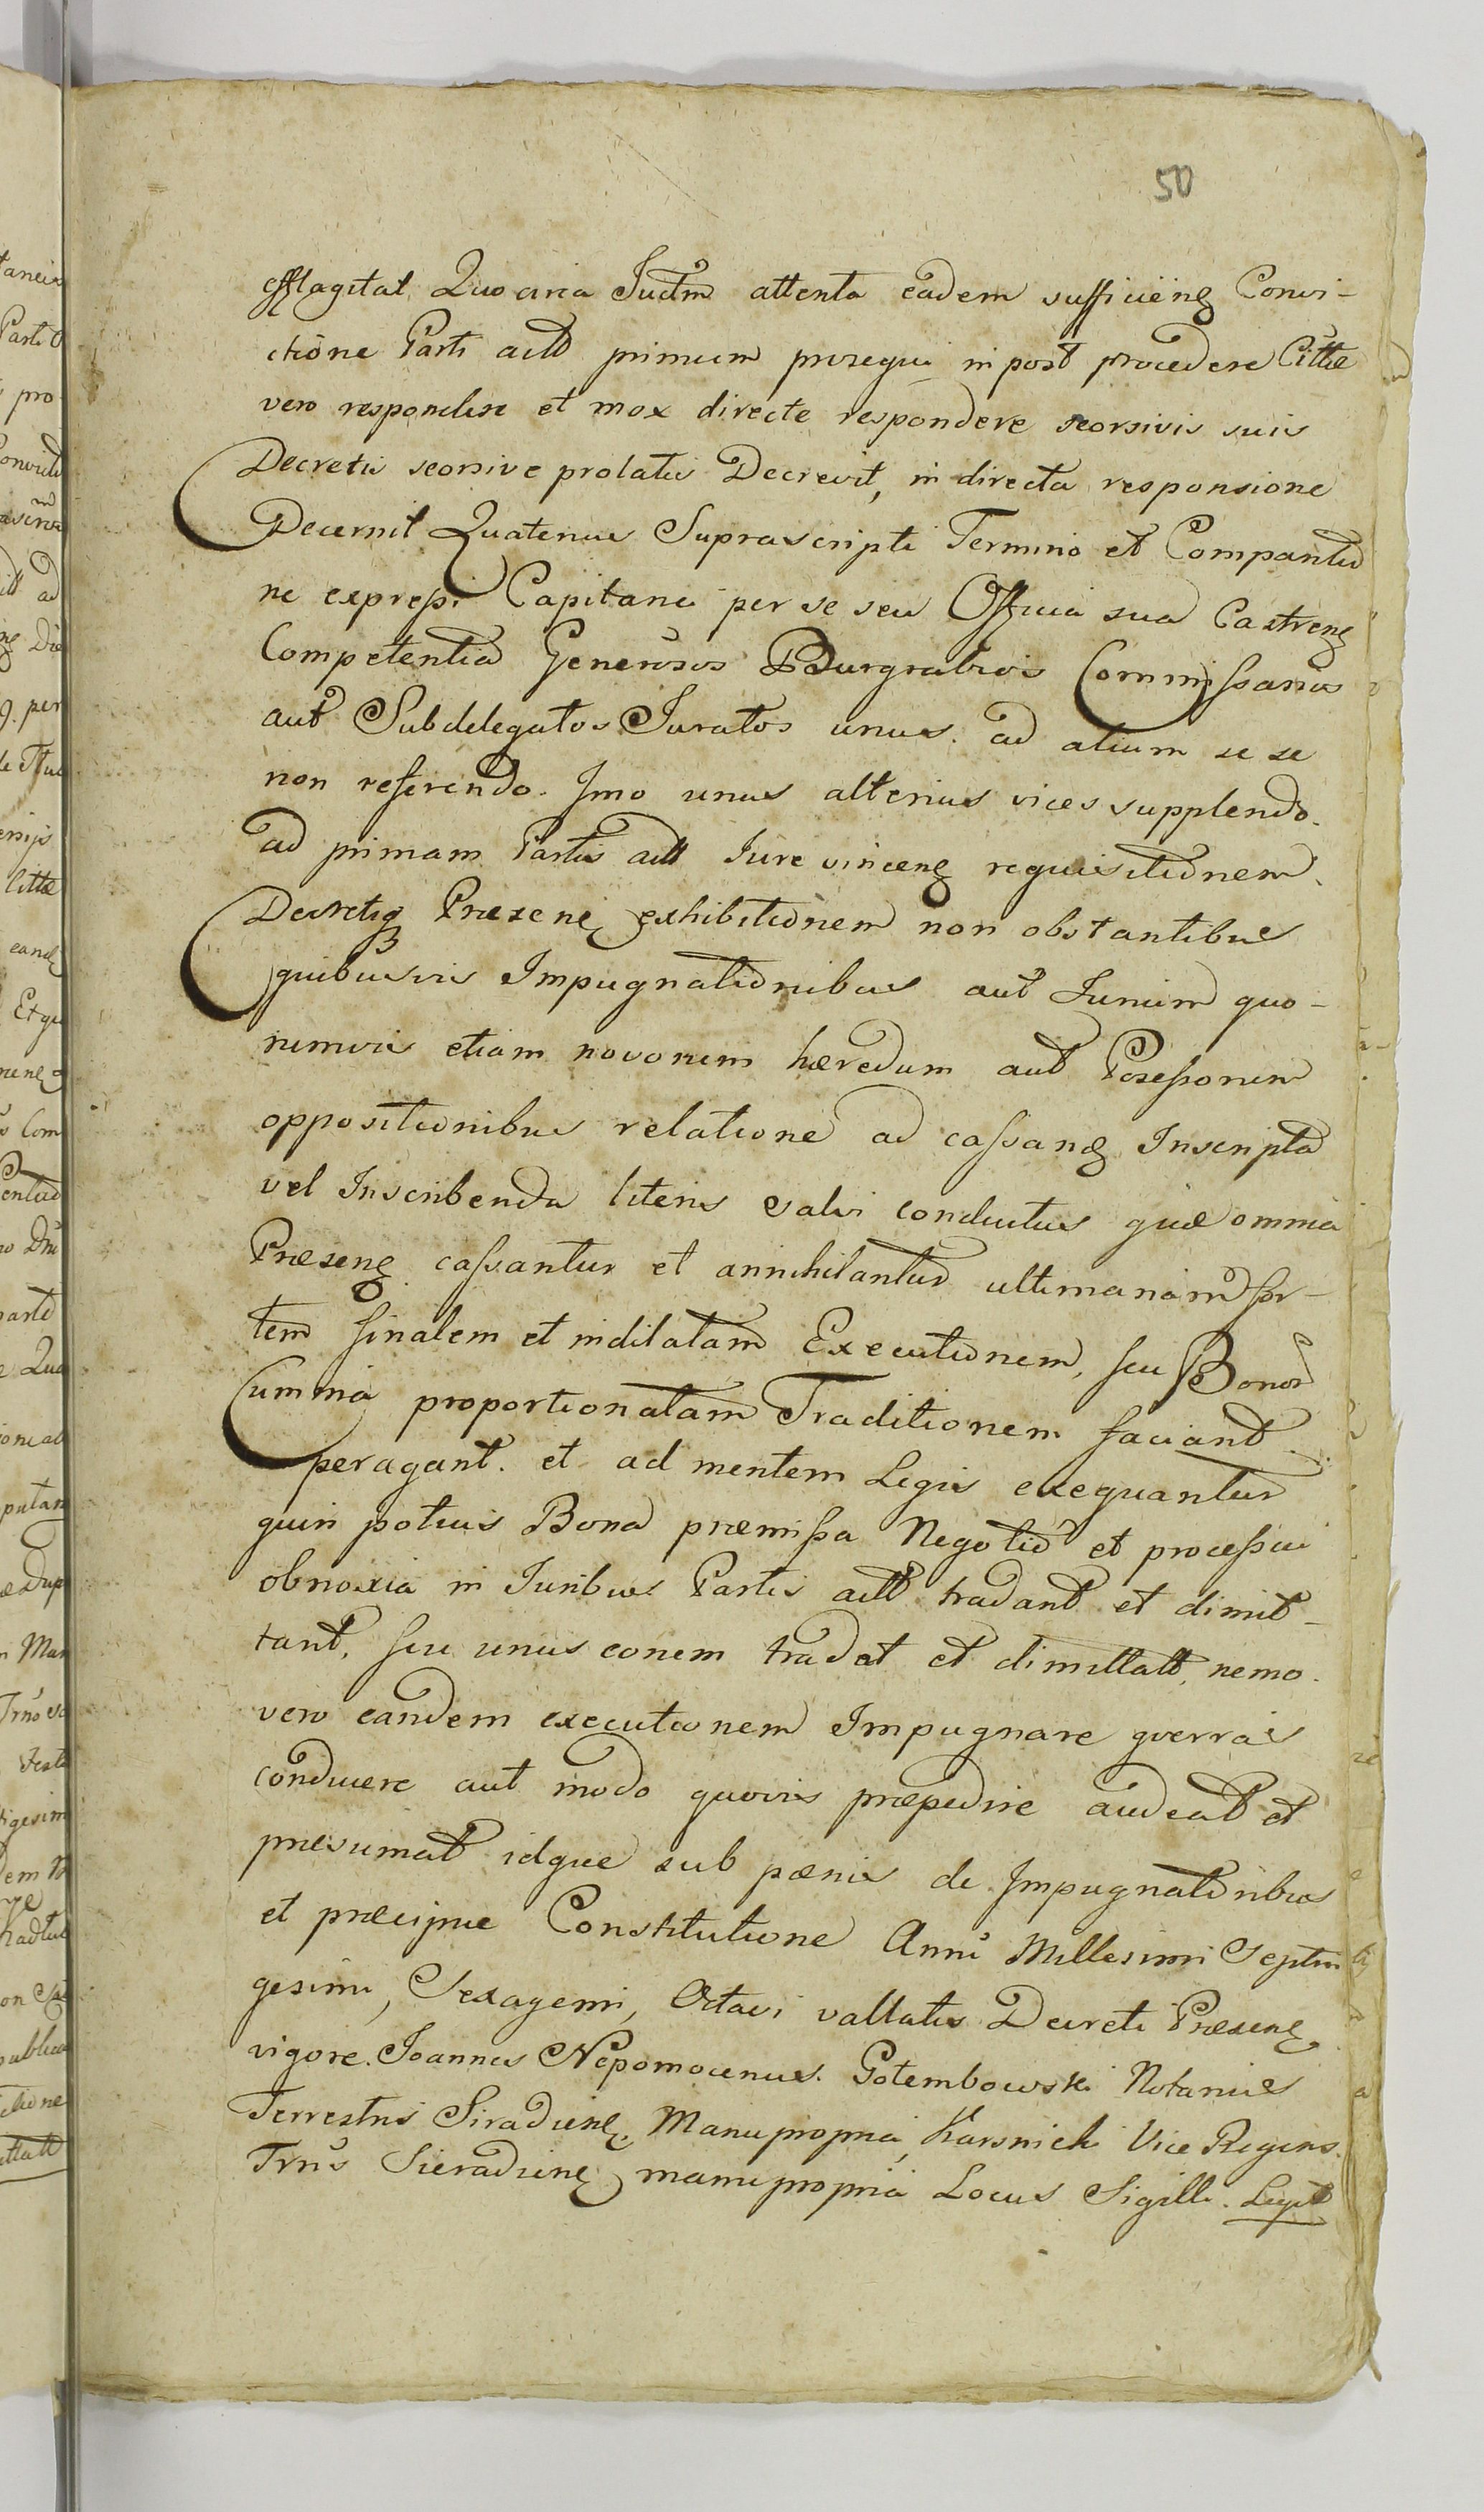 50
efflagitat Quocirca Iudm attenta eadem sufficieng Convi-
ctione Parti actt primum prosequi in post procedere Cittæ
vero respondere et mox directe respondere seorsivis suis
Decretis seorsive prolatis Decrevit, in directa responsione
Decernit Quatenus Suprascripti Termino et Comparitio
ne expressi Capitanei per se seu Officia sua Castreng
Competentia Generosos Burgrabios Commissarios
aut Subdelegatos Iuratos unus ad alium se se
non referendo. Imo unus alterius vices supplendo.
ad primam Partis actt Iure vinceng requisitionem.
Decretiq Præseng exhibitionem non obstantibus
quibusvis Impugnationibus aut Iurium quo-
rumvis etiam novorum hæredum aut Possessorum
oppositionibus relatione ad cassang Inscripta
vel Inscribenda literis salvi conductus quæ omnia
Præseng cassantur et annihilantur ultimariam for-
tem finalem et indilatam Executionem, seu Bonor
Summa proportionatam Traditionem faciant
peragant. et ad mentem Legis exequantur
quin potius Bona præmissa Negotio et processui
obnoxia in Iuribus Partis actt tradant et dimit-
tant, seu unus eorum tradat et dimittatt, nemo.
vero eandem executionem Impugnare guerras
conducere aut modo quovis præpedire audeat et
præsumat idque sub pænis de Impugnationibus
et præcipue Constitutione Anni Millesimi Septin
gesimi, Sexagemi, Octavi vallatis Decreti Præseng
vigore. Joannes Nepomocenus. Gotembowski Notarius
Terrestris Siradieng. Manu propria, Karsnicki Vice Regens.
Trns Sieradieng manu propria Locus Sigilli. Legit